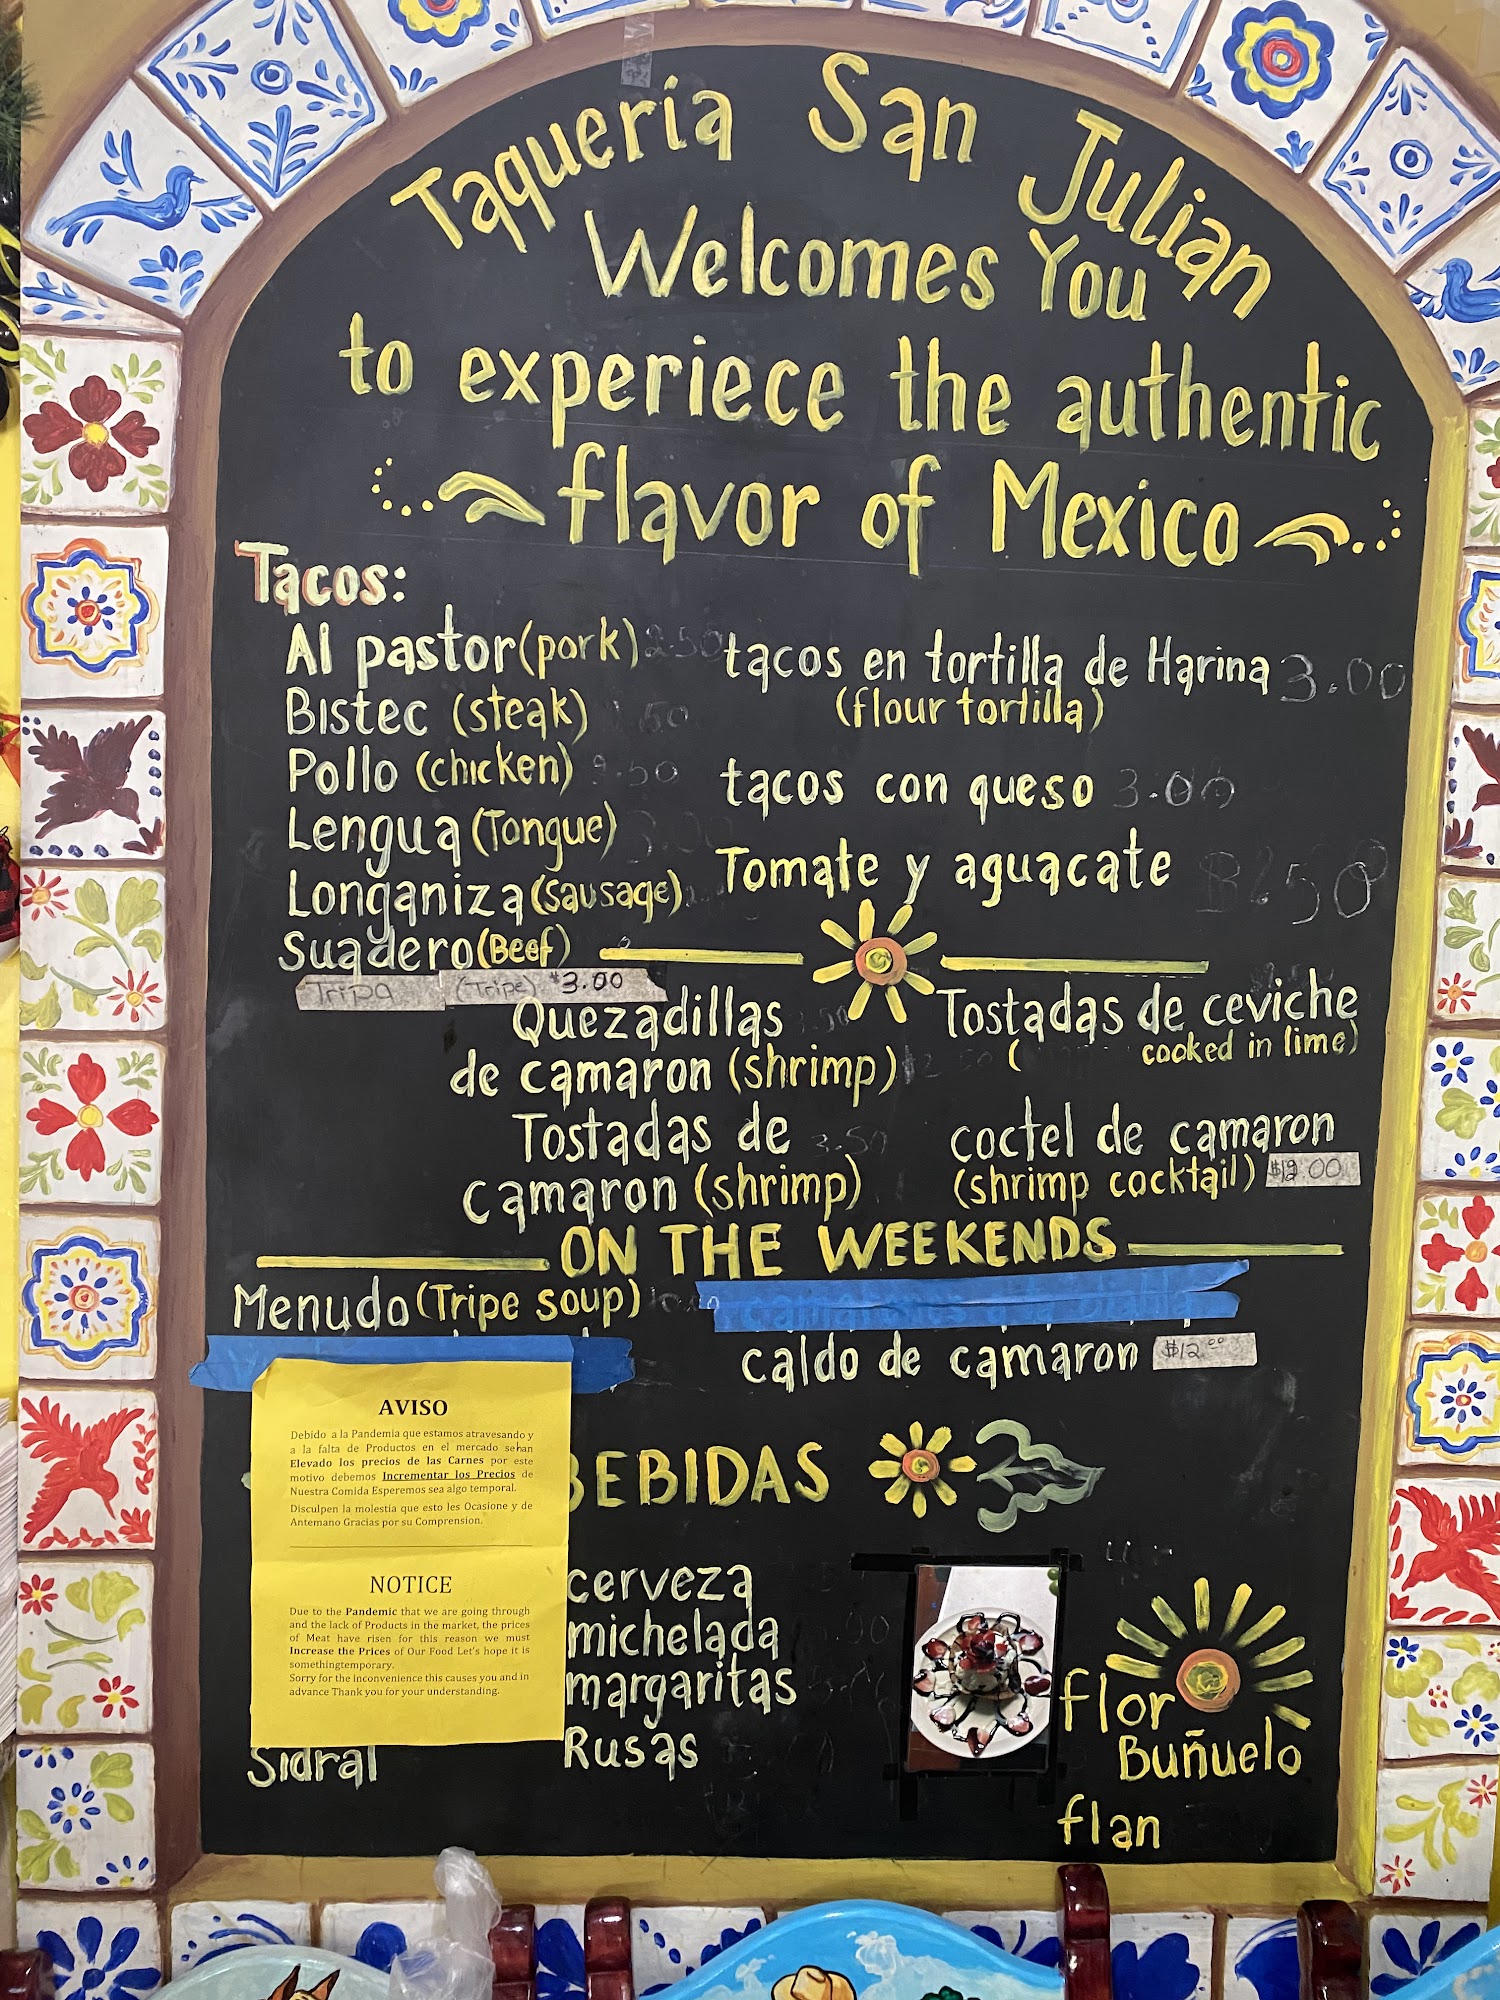 Taqueria San Julian
Welcomes You
to experiece the authentic
flavor of Mexico
Tacos:
Al pastor (pork) 2.50
Bistec (steak) .50
Pollo (chicken) .50
Lengua (Tongue) 3.00
Longaniza (sausage)
Suadero (Beef)
Tripa (Tripe) $3.00
tacos en tortilla de Harina 3.00
(flour tortilla)
tacos con queso 3.00
Tomate y aguacate .50
Quezadillas
de camaron (shrimp)
Tostadas de 3.50
camaron (shrimp)
Tostadas de ceviche
( cooked in lime)
coctel de camaron
(shrimp cocktail) $12.00
ON THE WEEKENDS
Menudo (Tripe soup)
caldo de camaron $12.00
AVISO
Debido a la Pandemia que estamos atravesando y
a la falta de Productos en el mercado sehan
Elevado los precios de las Carnes por este
motivo debemos Incrementar los Precios de
Nuestra Comida Esperemos sea algo temporal.
Disculpen la molestia que esto les Ocasione y de
Antemano Gracias por su Comprension.
NOTICE
Due to the Pandemic that we are going through
and the lack of Products in the market, the prices
of Meat have risen for this reason we must
Increase the Prices of Our Food Let's hope it is
somethingtemporary.
Sorry for the inconvenience this causes you and in
advance Thank you for your understanding.
BEBIDAS
Sidral
cerveza
michelada
margaritas
Rusas
flor
Buñuelo
flan